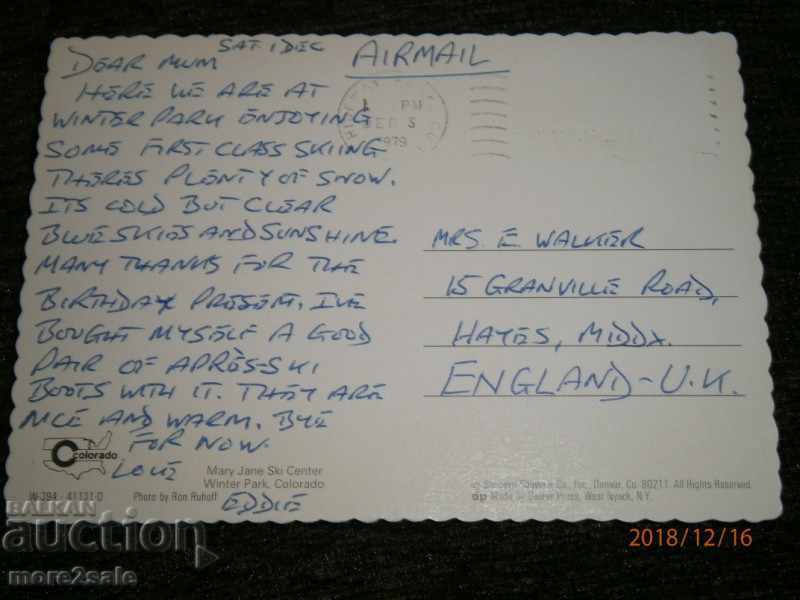 SAT. 1 DEC
AIRMAIL
DEAR MUM
HERE WE ARE AT
WINTER PARK ENJOYING
SOME FIRST CLASS SKIING
THERES PLENTY OF SNOW.
ITS COLD BUT CLEAR
BLUE SKIES AND SUNSHINE.
MANY THANKS FOR THE
BIRTHDAY PRESENT. I'VE
BOUGHT MYSELF A GOOD
PAIR OF APRÈS-SKI
BOOTS WITH IT. THEY ARE
NICE AND WARM. BYE
FOR NOW.
LOVE
EDDIE
PM
3
1979
MRS E WALKER
15 GRANVILLE ROAD,
HAYES, MIDDX.
ENGLAND-U.K.
Colorado
Mary Jane Ski Center
Winter Park, Colorado
W-394 41131-D Photo by Ron Ruhoff
Co., Inc., Denver, Co. 80211 All Rights Reserved.
Made by Dexter Press, West Nyack, N.Y.
BALKAN
auction
more2sale
2018/12/16